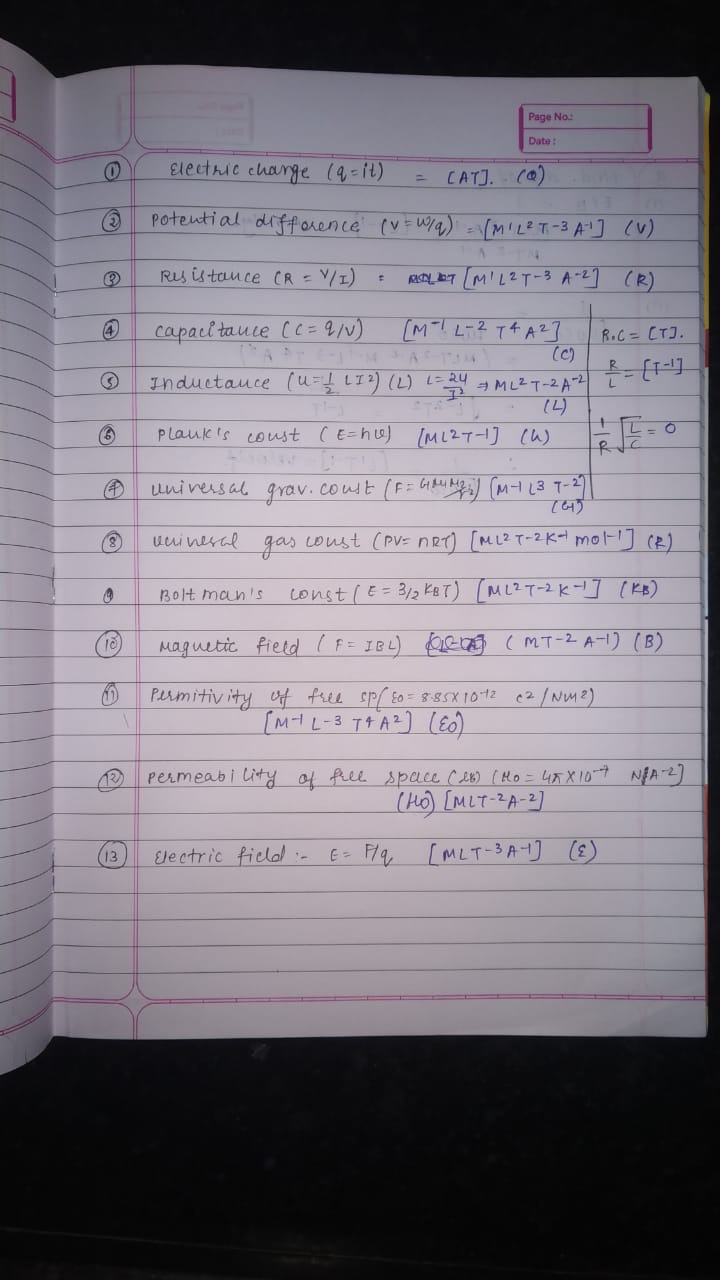 Page No.:
Date:
① Electric charge (q=it) = [AT]. (Q)
② Potential difference (V=W/q) = [M¹L²T-3A-1] (V)
③ Resistance (R = V/I) = [M¹L²T-3 A-2] (R)
④ capacitance (C = q/V) [M-1 L-2 T4 A2] (C)
R.C = [T].
⑤ Inductance (U=1/2 LI2) (L) L = 2U/I2 ⇒ ML2T-2A-2 (L)
R/L = [T-1]
⑥ Plank's const (E=hυ) [ML2T-1] (h)
1/R √L/C = 0
⑦ universal grav. const (F= [M-1 L3 T-2] (G)
⑧ univeral gas const (PV= nRT] [ML2T-2K-1 mol-1] (R)
9 Boltman's const (E = 3/2 KBT) [ML2T-2K-1] (KB)
⑩ Magnetic field (F= IBL) (MT-2 A-1) (B)
⑪ Permitivity of free sp( ε0 = 8.85X10-12 c2/Nm2)
[M-1 L-3 T4 A2] (ε0)
⑫ permeability of free space (μ0 = 4π X10-7 N/A-2]
(μ0) [MLT-2A-2]
⑬ Electric field :- E = F/q [MLT-3A-1] (E)